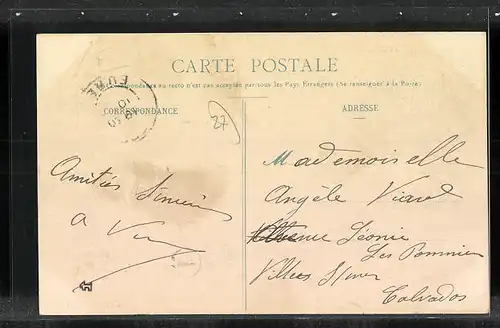 CARTE POSTALE
La Correspondance au recto n'est pas acceptée par tous les Pays Étrangers (Se renseigner à la Poste)
CORRESPONDANCE
ADRESSE
EURE
10
27
Mademoiselle
Angèle Viavel
Léonie
Les Pommiers
Villers S/mer
Calvados
Amitiés
a